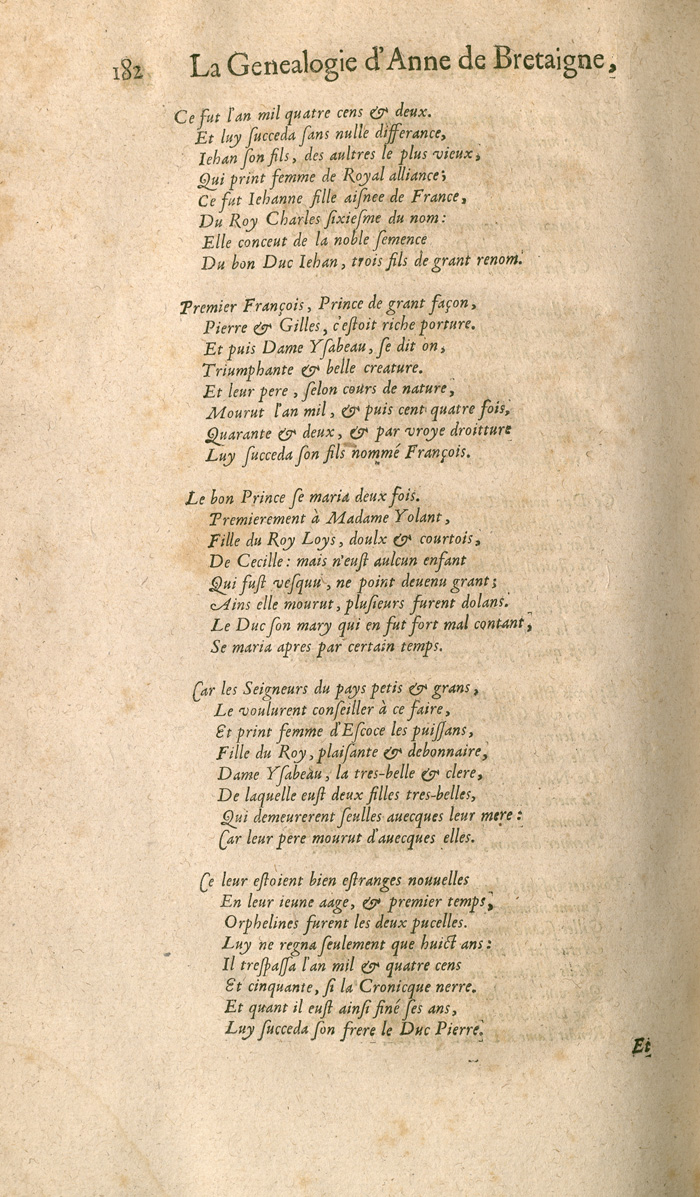 182 La Genealogie d'Anne de Bretaigne,
Ce fut l'an mil quatre cens & deux.
Et luy ſucceda ſans nulle differance,
Iehan ſon fils, des aultres le plus vieux,
Qui print femme de Royal alliance;
Ce fut Iehanne fille aiſnee de France,
Du Roy Charles ſixieſme du nom:
Elle conceut de la noble ſemence
Du bon Duc Iehan, trois fils de grant renom.
Premier François, Prince de grant façon,
Pierre & Gilles, c'eſtoit riche porture.
Et puis Dame Yſabeau, ſe dit on,
Triumphante & belle creature.
Et leur pere, ſelon cours de nature,
Mourut l'an mil, & puis cent quatre fois,
Quarante & deux, & par vroye droitture
Luy ſucceda ſon fils nommé François.
Le bon Prince ſe maria deux fois.
Premierement à Madame Yolant,
Fille du Roy Loys, doulx & courtois,
De Cecille: mais n'euſt aulcun enfant
Qui fuſt veſquu, ne point deuenu grant;
Ains elle mourut, pluſieurs furent dolans.
Le Duc ſon mary qui en fut fort mal contant,
Se maria apres par certain temps.
Car les Seigneurs du pays petis & grans,
Le voulurent conſeiller à ce faire,
Et print femme d'Eſcoce les puiſſans,
Fille du Roy, plaiſante & debonnaire,
Dame Yſabeau, la tres-belle & clere,
De laquelle euſt deux filles tres-belles,
Qui demeurerent ſeulles auecques leur mere:
Car leur pere mourut d'auecques elles.
Ce leur eſtoient bien eſtranges nouuelles
En leur ieune aage, & premier temps,
Orphelines furent les deux pucelles.
Luy ne regna ſeulement que huict ans:
Il treſpaſſa l'an mil & quatre cens
Et cinquante, ſi la Cronicque nerre.
Et quant il euſt ainſi finé ſes ans,
Luy ſucceda ſon frere le Duc Pierre.
Et